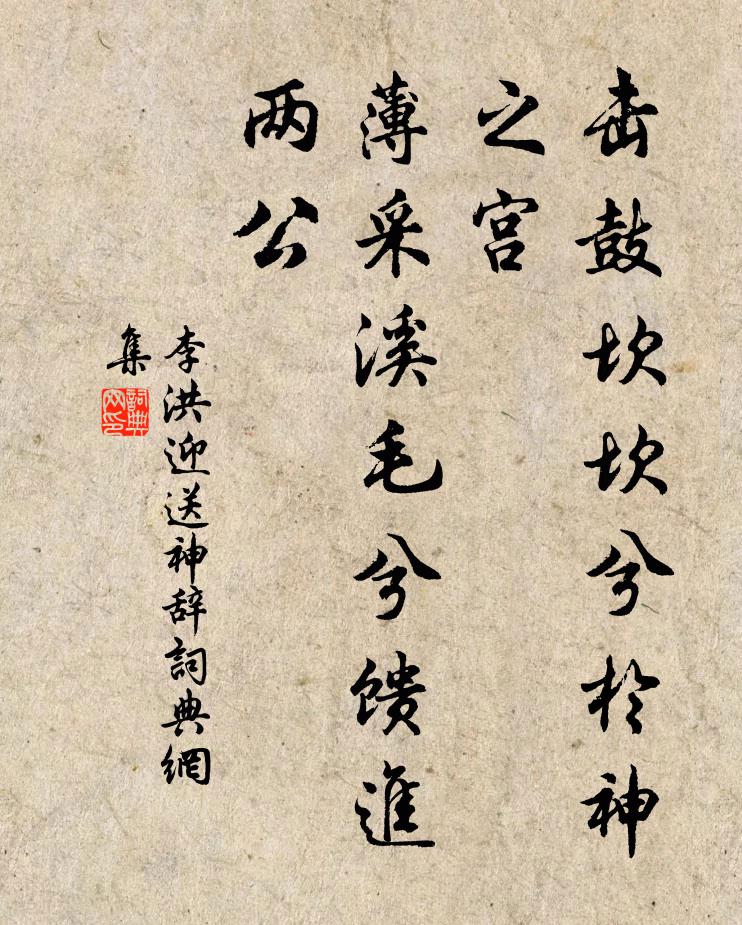 击鼓坎坎兮於神
之宫
薄采溪毛兮馈進
两公
李洪迎送神辞詞典網
集
詞典
网印